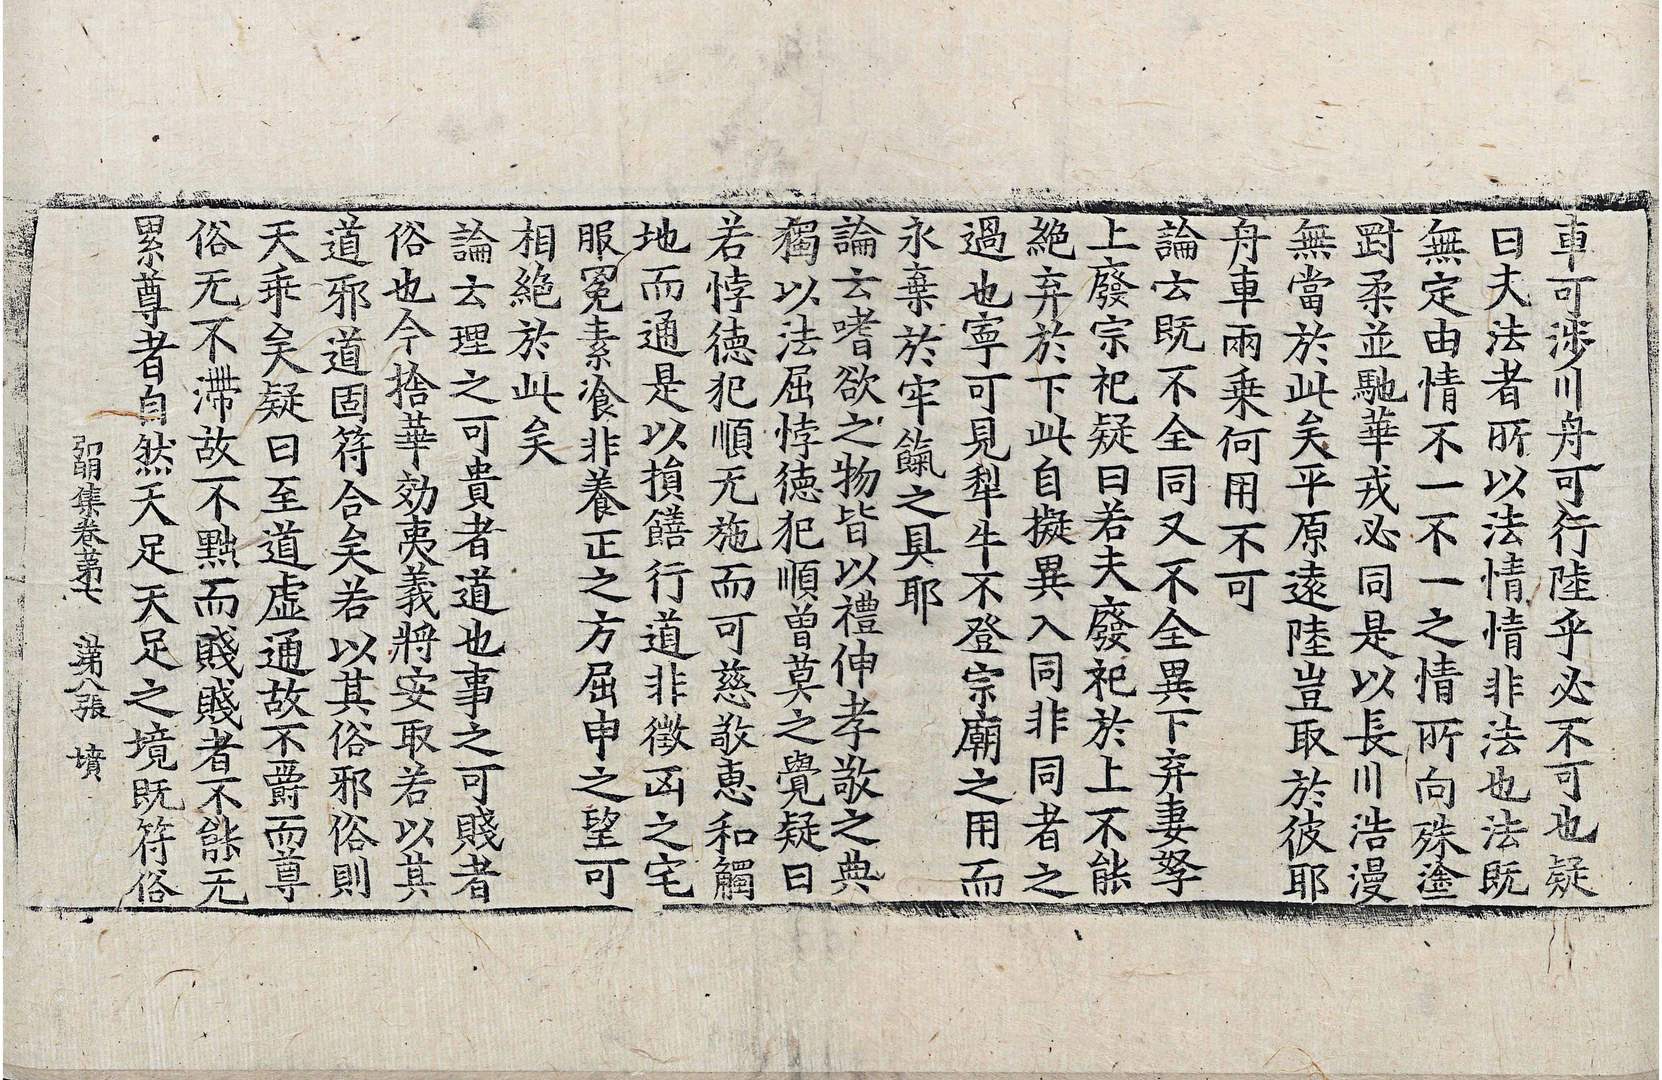 車可涉川舟可行陸乎必不可也疑
曰夫法者所以法情情非法也法旣
無定由情不一不一之情所向殊塗
對柔並馳華戎必同是以長川浩漫
無當於此矣平原遠陸豈取於彼耶
舟車兩乗何用不可
論云既不全同又不全異下弃妻孥
上廢宗祀疑曰若夫廢祀於上不能
絶弃於下此自擬異入同非同者之
過也寧可見犁牛不登宗廟之用而
永棄於牢餼之具耶
論云嗜欲之物皆以禮伸孝敬之典
獨以法屈悖德犯順曽莫之覺疑曰
若悖德犯順无施而可慈敬惠和觸
地而通是以損饍行道非徵凶之宅
服冕素飡非養正之方屈申之望可
相絶於此矣
論云理之可貴者道也事之可賤者
俗也今捨華効夷義將安取若以其
道邪道固符合矣若以其俗邪俗則
天乖矣疑曰至道虚通故不爵而尊
俗无不滯故不黜而賤賤者不能无
累尊者自然天足天足之境既符俗
弘明集卷苐七 苐八張 墳